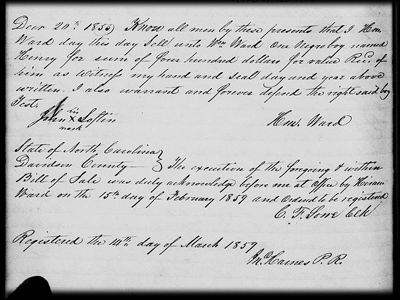 Decr 20th 1855 Know all men by these presents that I Hem
Ward day this day Sell unto Wm Ward One Negro boy named
Henry for sum of four hundred dollars for value Recd. of
him as witness my hand and seal day and year above
written. I also warrant and forever defend the right said boy
Test
his
John X Loftin
mark
Hem. Ward
State of North Carolina
Davidson County The execution of the foregoing & within
Bill of Sale was duly acknowledge before me at office by Hiram
Ward on the 15th day of February 1859 and Ordered to be registered
C. F. Lowe Clk
Registered the 14th day of March 1859
Haines P. R.